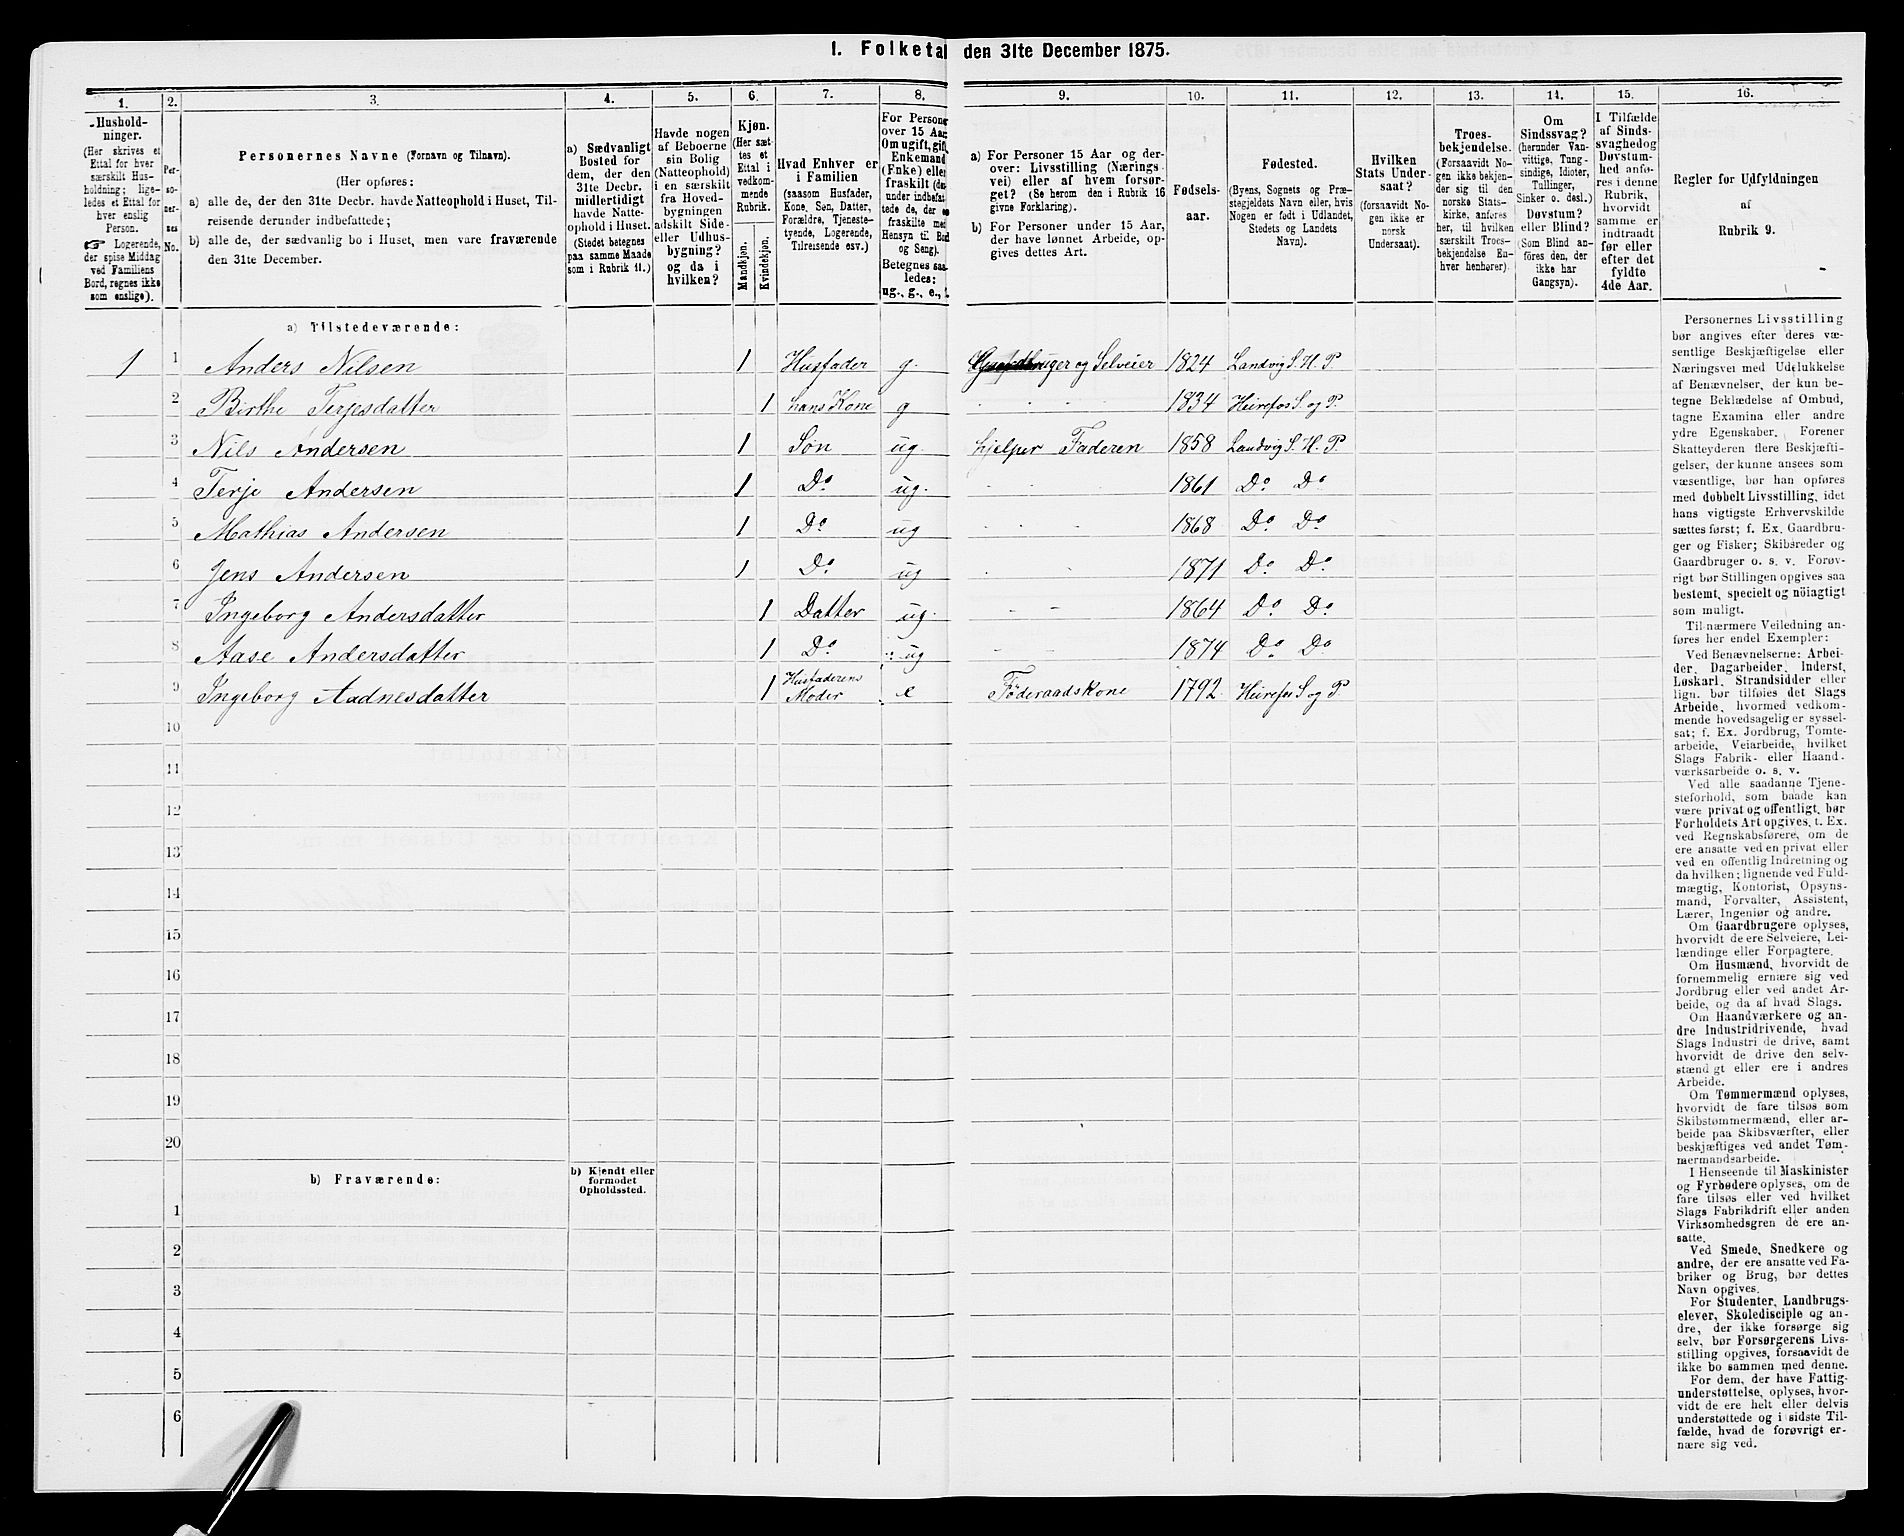 1. Folketal den 31te December 1875.
1. 2. 3. 4. 5. 6. 7. 8. 9. 10. 11. 12. 13. 14. 15. 16.
Hushold-
ninger.
(Her skrives et
Ettal for hver
særskilt Hus-
holdning; lige-
ledes et Ettal for
hver enslig
Person.
☞ Logerende,
der spise Middag
ved Familiens
Bord, regnes ikke
som enslige).
Per-
so-
ner-
nes
No.
Personernes Navne (Fornavn og Tilnavn).
(Her opføres:
a) alle de, der den 31te Decbr. havde Natteophold i Huset, Til-
reisende derunder indbefattede;
b) alle de, der sædvanlig bo i Huset, men vare fraværende
den 31te December.
a) Sædvanligt
Bosted for
dem, der den
31te Decbr.
midlertidigt
havde Natte-
ophold i Huset.
(Stedet betegnes
paa samme Maade
som i Rubrik 11.)
Havde nogen
af Beboerne
sin Bolig
(Natteophold)
i en særskilt
fra Hoved-
bygningen
adskilt Side-
eller Udhus-
bygning?
og da i
hvilken?
Kjøn.
(Her sæt-
tes et
Ettal i
vedkom-
mende
Rubrik.
Mandkjøn.
Kvindekjøn.
Hvad Enhver er
i Familien
(saasom Husfader,
Kone, Søn, Datter,
Forældre, Tjeneste-
tyende, Logerende,
Tilreisende osv.)
For Persone
over 15 Aar
Om ugift, gift,
Enkemand
(Enke) eller
fraskilt (de
under indbefat
tede de, der e
fraskilte me
Hensyn til Bo
og Seng).
Betegnes saa
ledes:
ug., g., e.,
a) For Personer 15 Aar og der-
over: Livsstilling (Nærings-
vei) eller af hvem forsør-
get? (Se herom den i Rubrik 16
givne Forklaring).
b) For Personer under 15 Aar,
der have lønnet Arbeide, op-
gives dettes Art.
Fødsels-
aar.
Fødested.
(Byens, Sognets og Præ-
stegjeldets Navn eller, hvis
Nogen er født i Udlandet,
Stedets og Landets
Navn).
Hvilken
Stats Under-
saat?
(forsaavidt No-
gen ikke er
norsk
Undersaat).
Troes-
bekjendelse.
(Forsaavidt No-
gen ikke bekjen-
der sig til den
norske Stats-
kirke, anføres
her, til hvilken
særskilt Troes-
bekjendelse En-
hver henhører).
Om
Sindssvag?
(herunder Van-
vittige, Tung-
sindige, Idioter,
Tullinger,
Sinker o. desl.)
Døvstum?
eller Blind?
(Som Blind an-
føres den, der
ikke har
Gangsyn).
I Tilfælde
af Sinds-
svaghed og
Døvstum-
hed anfø-
res i denne
Rubrik,
hvorvidt
samme er
indtraadt
før eller
efter det
fyldte
4de Aar.
Regler for Udfyldningen
af
Rubrik 9.
a) Tilstedeværende:
1 1 Anders Nilsen 1 Husfader g. Gaardbruger og Selveier 1824 Landvig S. H. P.
2 Birthe Terjesdatter 1 hans Kone g 1834 Heirefos S. og P.
3 Nils Andersen 1 Søn ug. hjelper Faderen 1858 Landvig S. H. P.
4 Terje Andersen 1 Do ug. 1861 Do Do
5 Mathias Andersen 1 Do ug 1868 Do Do
6 Jens Andersen 1 Do ug 1871 Do Do
7 Ingeborg Andersdatter 1 Datter ug. 1864 Do Do
8 Aase Andersdatter 1 Do ug 1874 Do Do
9 Ingeborg Aadnesdatter 1 Husfaderens Moder e Föderaadskone 1792 Heirefos S og P
10
11
12
13
14
15
16
17
18
19
20
b) Fraværende:
b) Kjendt eller
formodet
Opholdssted.
1
2
3
4
5
6
Personernes Livsstilling
bør angives efter deres væ-
sentlige Beskjæftigelse eller
Næringsvei med Udelukkelse
af Benævnelser, der kun be-
tegne Beklædelse af Ombud,
tagne Examina eller andre
ydre Egenskaber. Forener
Skatteyderen flere Beskjæfti-
gelser, der kunne ansees som
væsentlige, bør han opføres
med dobbelt Livsstilling, idet
hans vigtigste Erhvervskilde
sættes først; f. Ex. Gaardbru-
ger og Fisker; Skibsreder og
Gaardbruger o. s. v. Forøv-
rigt bør Stillingen opgives saa
bestemt, specielt og nöiagtigt
som muligt.
Til nærmere Veiledning an-
føres her endel Exempler:
Ved Benævnelserne: Arbei-
der, Dagarbeider, Inderst,
Løskarl, Strandsidder eller
lign. bør tilføies det Slags
Arbeide, hvormed vedkom-
mende hovedsagelig er syssel-
sat; f. Ex. Jordbrug, Tomte-
arbeide, Veiarbeide, hvilket
Slags Fabrik- eller Haand-
værksarbeide o. s. v.
Ved alle saadanne Tjene-
steforhold, som baade kan
være privat og offentligt, bør
Forholdets Art opgives, t. Ex.
ved Regnskabsførere, om de
ere ansatte ved en privat eller
ved en offentlig Indretning og
da hvilken; lignende ved Fuld-
mægtig, Kontorist, Opsyns-
mand, Forvalter, Assistent,
Lærer, Ingeniør og andre.
Om Gaardbrugere oplyses,
hvorvidt de ere Selveiere, Lei-
lændinge eller Forpagtere.
Om Husmænd, hvorvidt de
fornemmelig ernære sig ved
Jordbrug eller ved andet Ar-
beide, og da af hvad Slags.
Om Haandværkere og an-
dre Industridrivende, hvad
Slags Industri de drive, samt
hvorvidt de drive den selv-
stændigt eller ere i andres
Arbeide.
Om Tømmermænd oplyses,
hvorvidt de fare tilsøs som
Skibstømmermænd, eller ar-
beide paa Skibsværfter, eller
beskjæftiges ved andet Tøm-
mermandsarbeide.
I Henseende til Maskinister
og Fyrbødere oplyses, om de
fare tilsøs eller ved hvilket
Slags Fabrikdrift eller anden
Virksomhedsgren de ere an-
satte.
Ved Smede, Snedkere og
andre, der ere ansatte ved Fa-
briker og Brug, bør dettes
Navn opgives.
For Studenter, Landbrugs-
elever, Skoledisciple og an-
dre, der ikke forsørge sig
selv, bør Forsørgerens Livs-
stilling opgives, forsaavidt de
ikke bo sammen med denne.
For dem, der have Fattig-
understøttelse, oplyses, hvor-
vidt de ere helt eller delvis
understøttede og i sidste Til-
fælde, hvad de forøvrigt er-
nære sig ved.